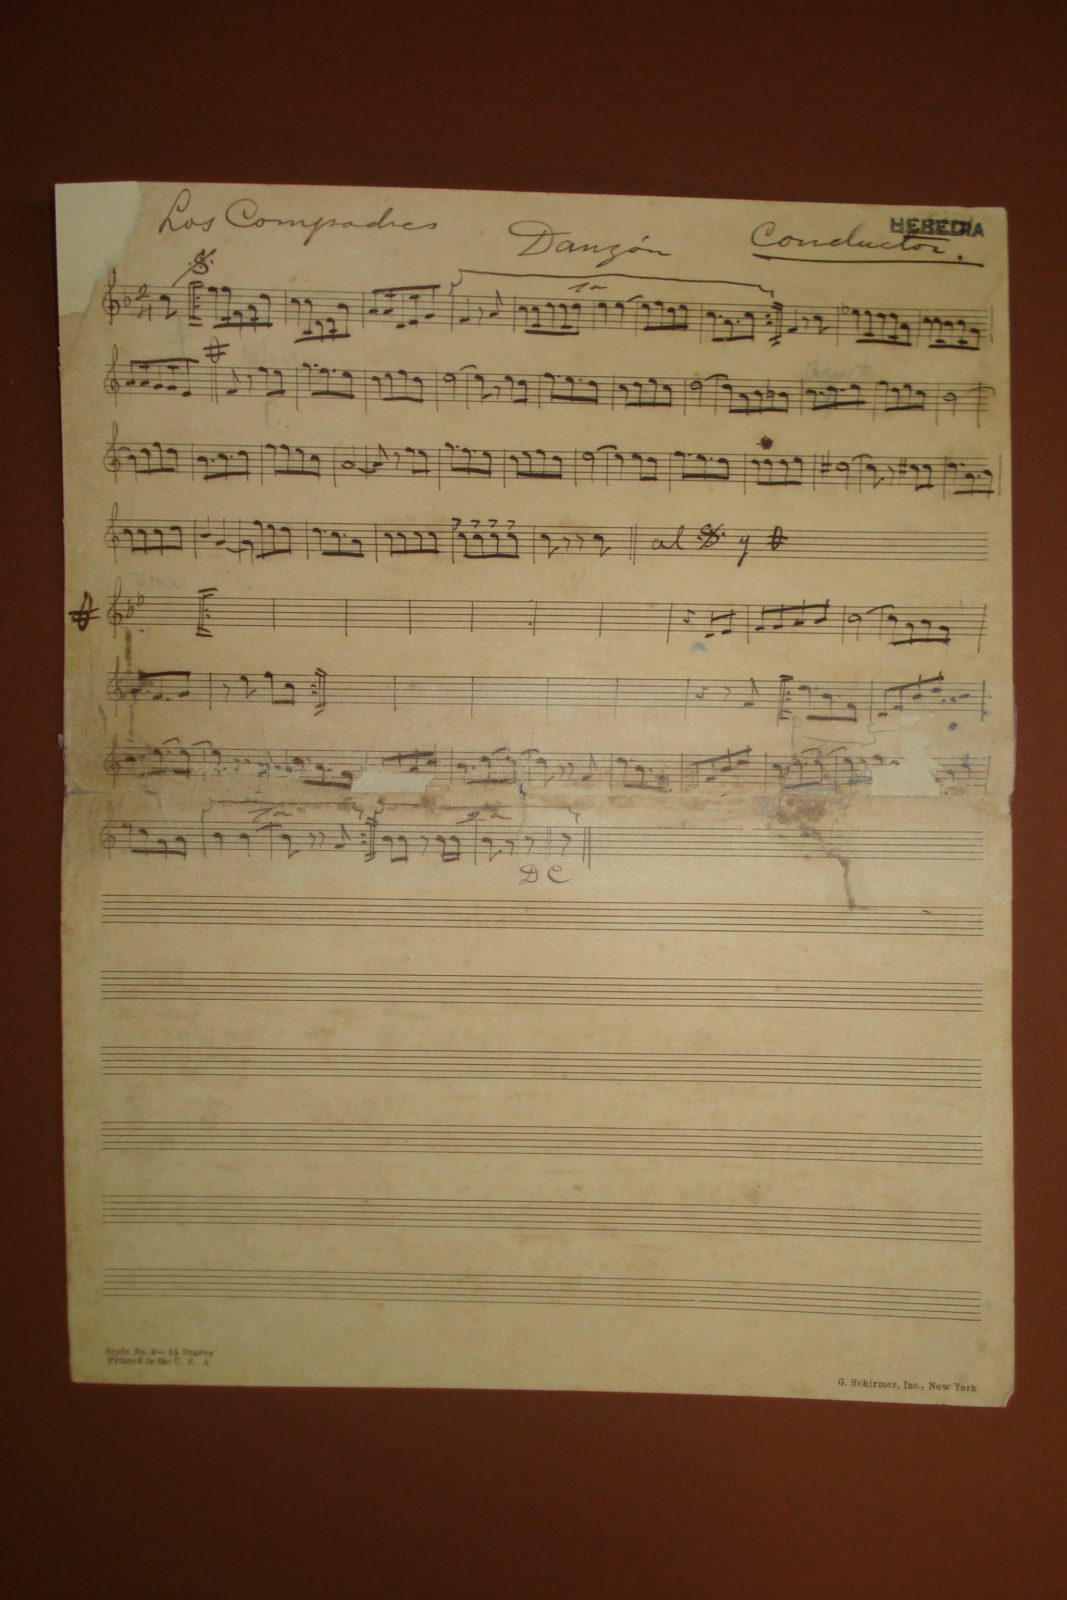 Los Compadres Danzón Conductor.
HEREDIA
1a
al 𝄋 y
1a 2a
D C
Style No. 3— 14 Staves
Printed in the U. S. A
G. Schirmer, Inc., New York